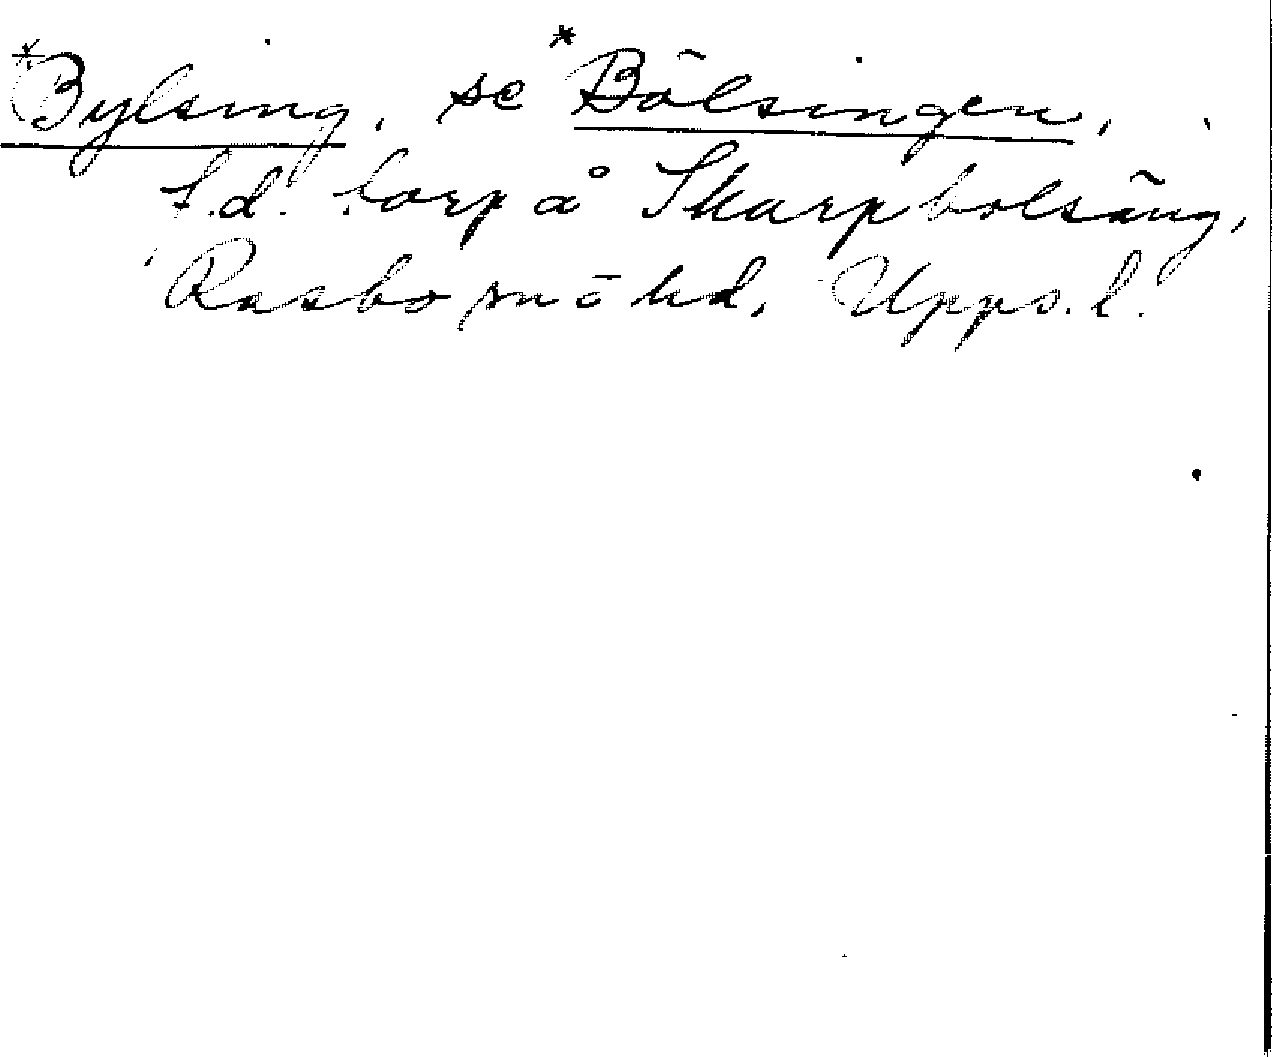 *Bylsing, se *Bölsingen,
f.d. torp å Skarpbolsäng,
Rasbo sn ö hd. Upps. l.